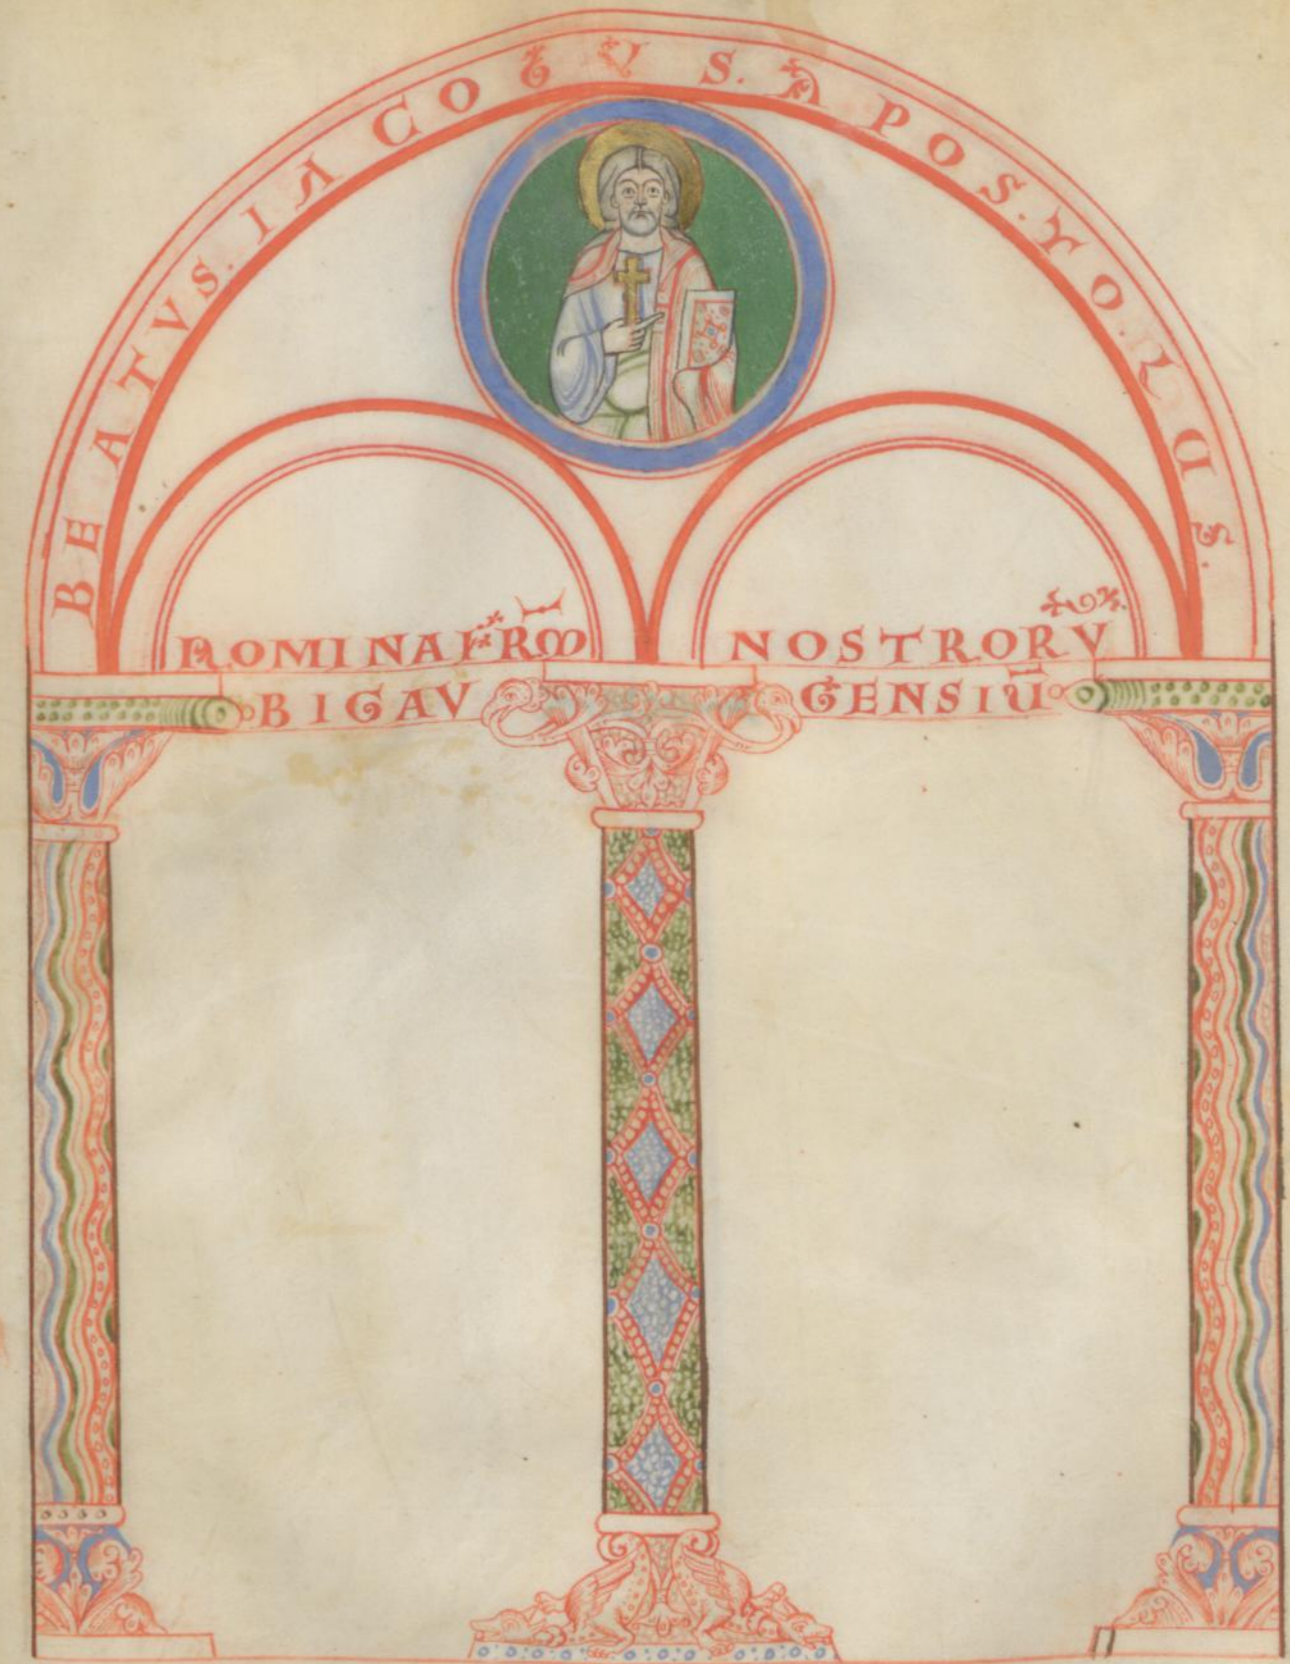 BEATVS. IACOBVS. APOS.TO.LUS.
NOMINA FRM NOSTRORV
BIGAVGENSIU